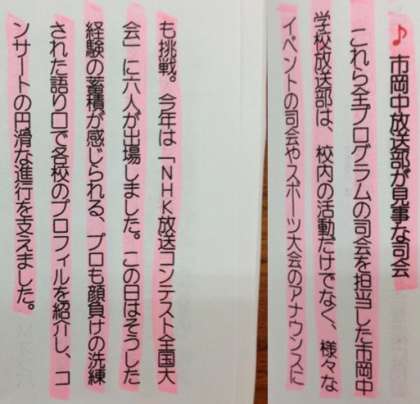 ♪ 市岡中放送部が見事な司会
これら全プログラムの司会を担当した市岡中
学校放送部は、校内の活動だけでなく、様々な
イベントの司会やスポーツ大会のアナウンスに
も挑戦。今年は「NHK放送コンテスト全国大
会」に六人が出場しました。この日はそうした
経験の蓄積が感じられる、プロも顔負けの洗練
された語り口で各校のプロフィルを紹介し、コ
ンサートの円滑な進行を支えました。